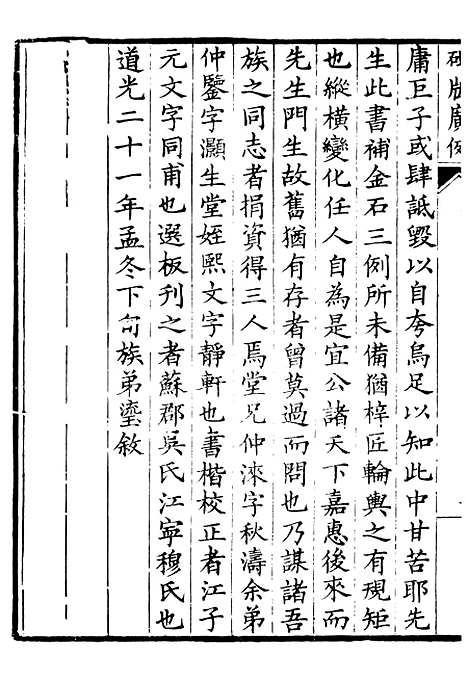 碑版廣例
庸巨子或肆詆毀以自夸烏足以知此中甘苦耶先
生此書補金石三例所未備猶梓匠輪輿之有規矩
也縱橫變化任人自為是宜公諸天下嘉惠後來而
先生門生故舊猶有存者曾莫過而問也乃謀諸吾
族之同志者捐資得三人焉堂兄仲淶字秋濤余弟
仲鑒字灝生堂姪熙文字靜軒也書楷校正者江子
元文字同甫也選板刊之者蘇郡吳氏江寧穆氏也
道光二十一年孟冬下旬族弟鎏敘